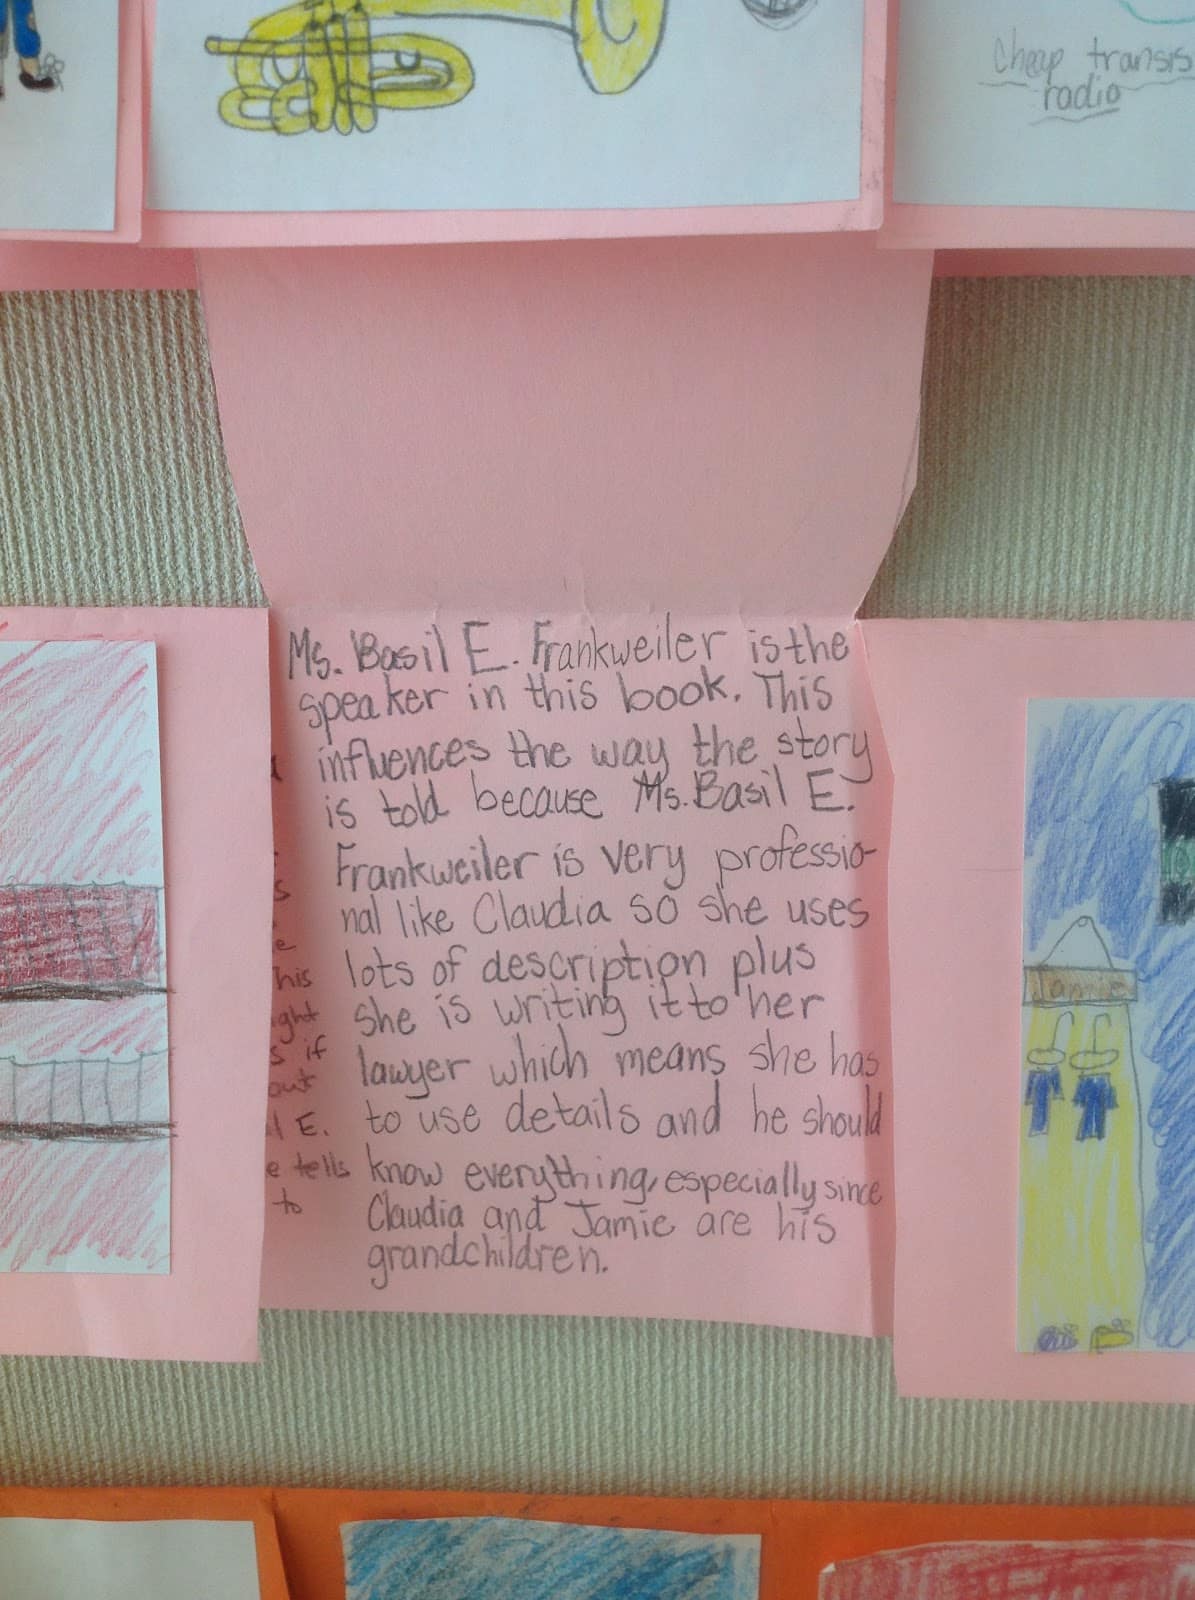 Cheap transis
radio
Ms. Basil E. Frankweiler is the
speaker in this book. This
influences the way the story
is told because Ms. Basil E.
Frankweiler is very professio-
nal like Claudia so she uses
lots of description plus
she is writing it to her
lawyer which means she has
to use details and he should
know everything, especially since
Claudia and Jamie are his
grandchildren.
s
e
his
ight
s if
out
l E.
e tells
to
Jamie